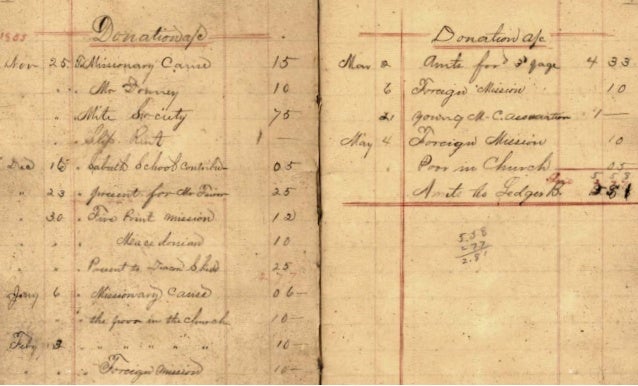 Donation a/c
1885
Nov 25 Pd Missionary Cause 15
" " Mr Downey 10
" " Mite Society 75
" " Slip Rent 1 —
Dec 15 Sabath School Contribu 05
" 23 present for Mr 25
" 30 Five Point Mission 12
" " Macedonian 10
" " Present to 25
Jany 6 Missionary Cause 06
" " the poor in the church 10
Feby 3 " " " " " 10
" " Foreign Mission 10
Donation a/c
Mar 2 Amte for'd 3d page 4 33
6 Foreign Mission 10
21 Young M. C. Association 1 —
May 4 Foreign Mission 10
" Poor in Church 05
5 58
Amte to Ledger B.
5.58
277
2.81